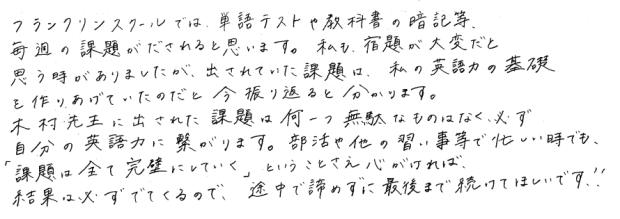 フランクリンスクールでは、単語テストや教科書の暗記等、
毎週の課題がだされると思います。私も、宿題が大変だと
思う時がありましたが、出されていた課題は、私の英語力の基礎
を作りあげていたのだと今振り返ると分かります。
木村先生に出された課題は何一つ無駄なものはなく、必ず
自分の英語力に繋がります。部活や他の習い事等で忙しい時でも、
「課題は全て完璧にしていく」ということさえ心がければ、
結果は必ずでてくるので、途中で諦めずに最後まで続けてほしいです!!